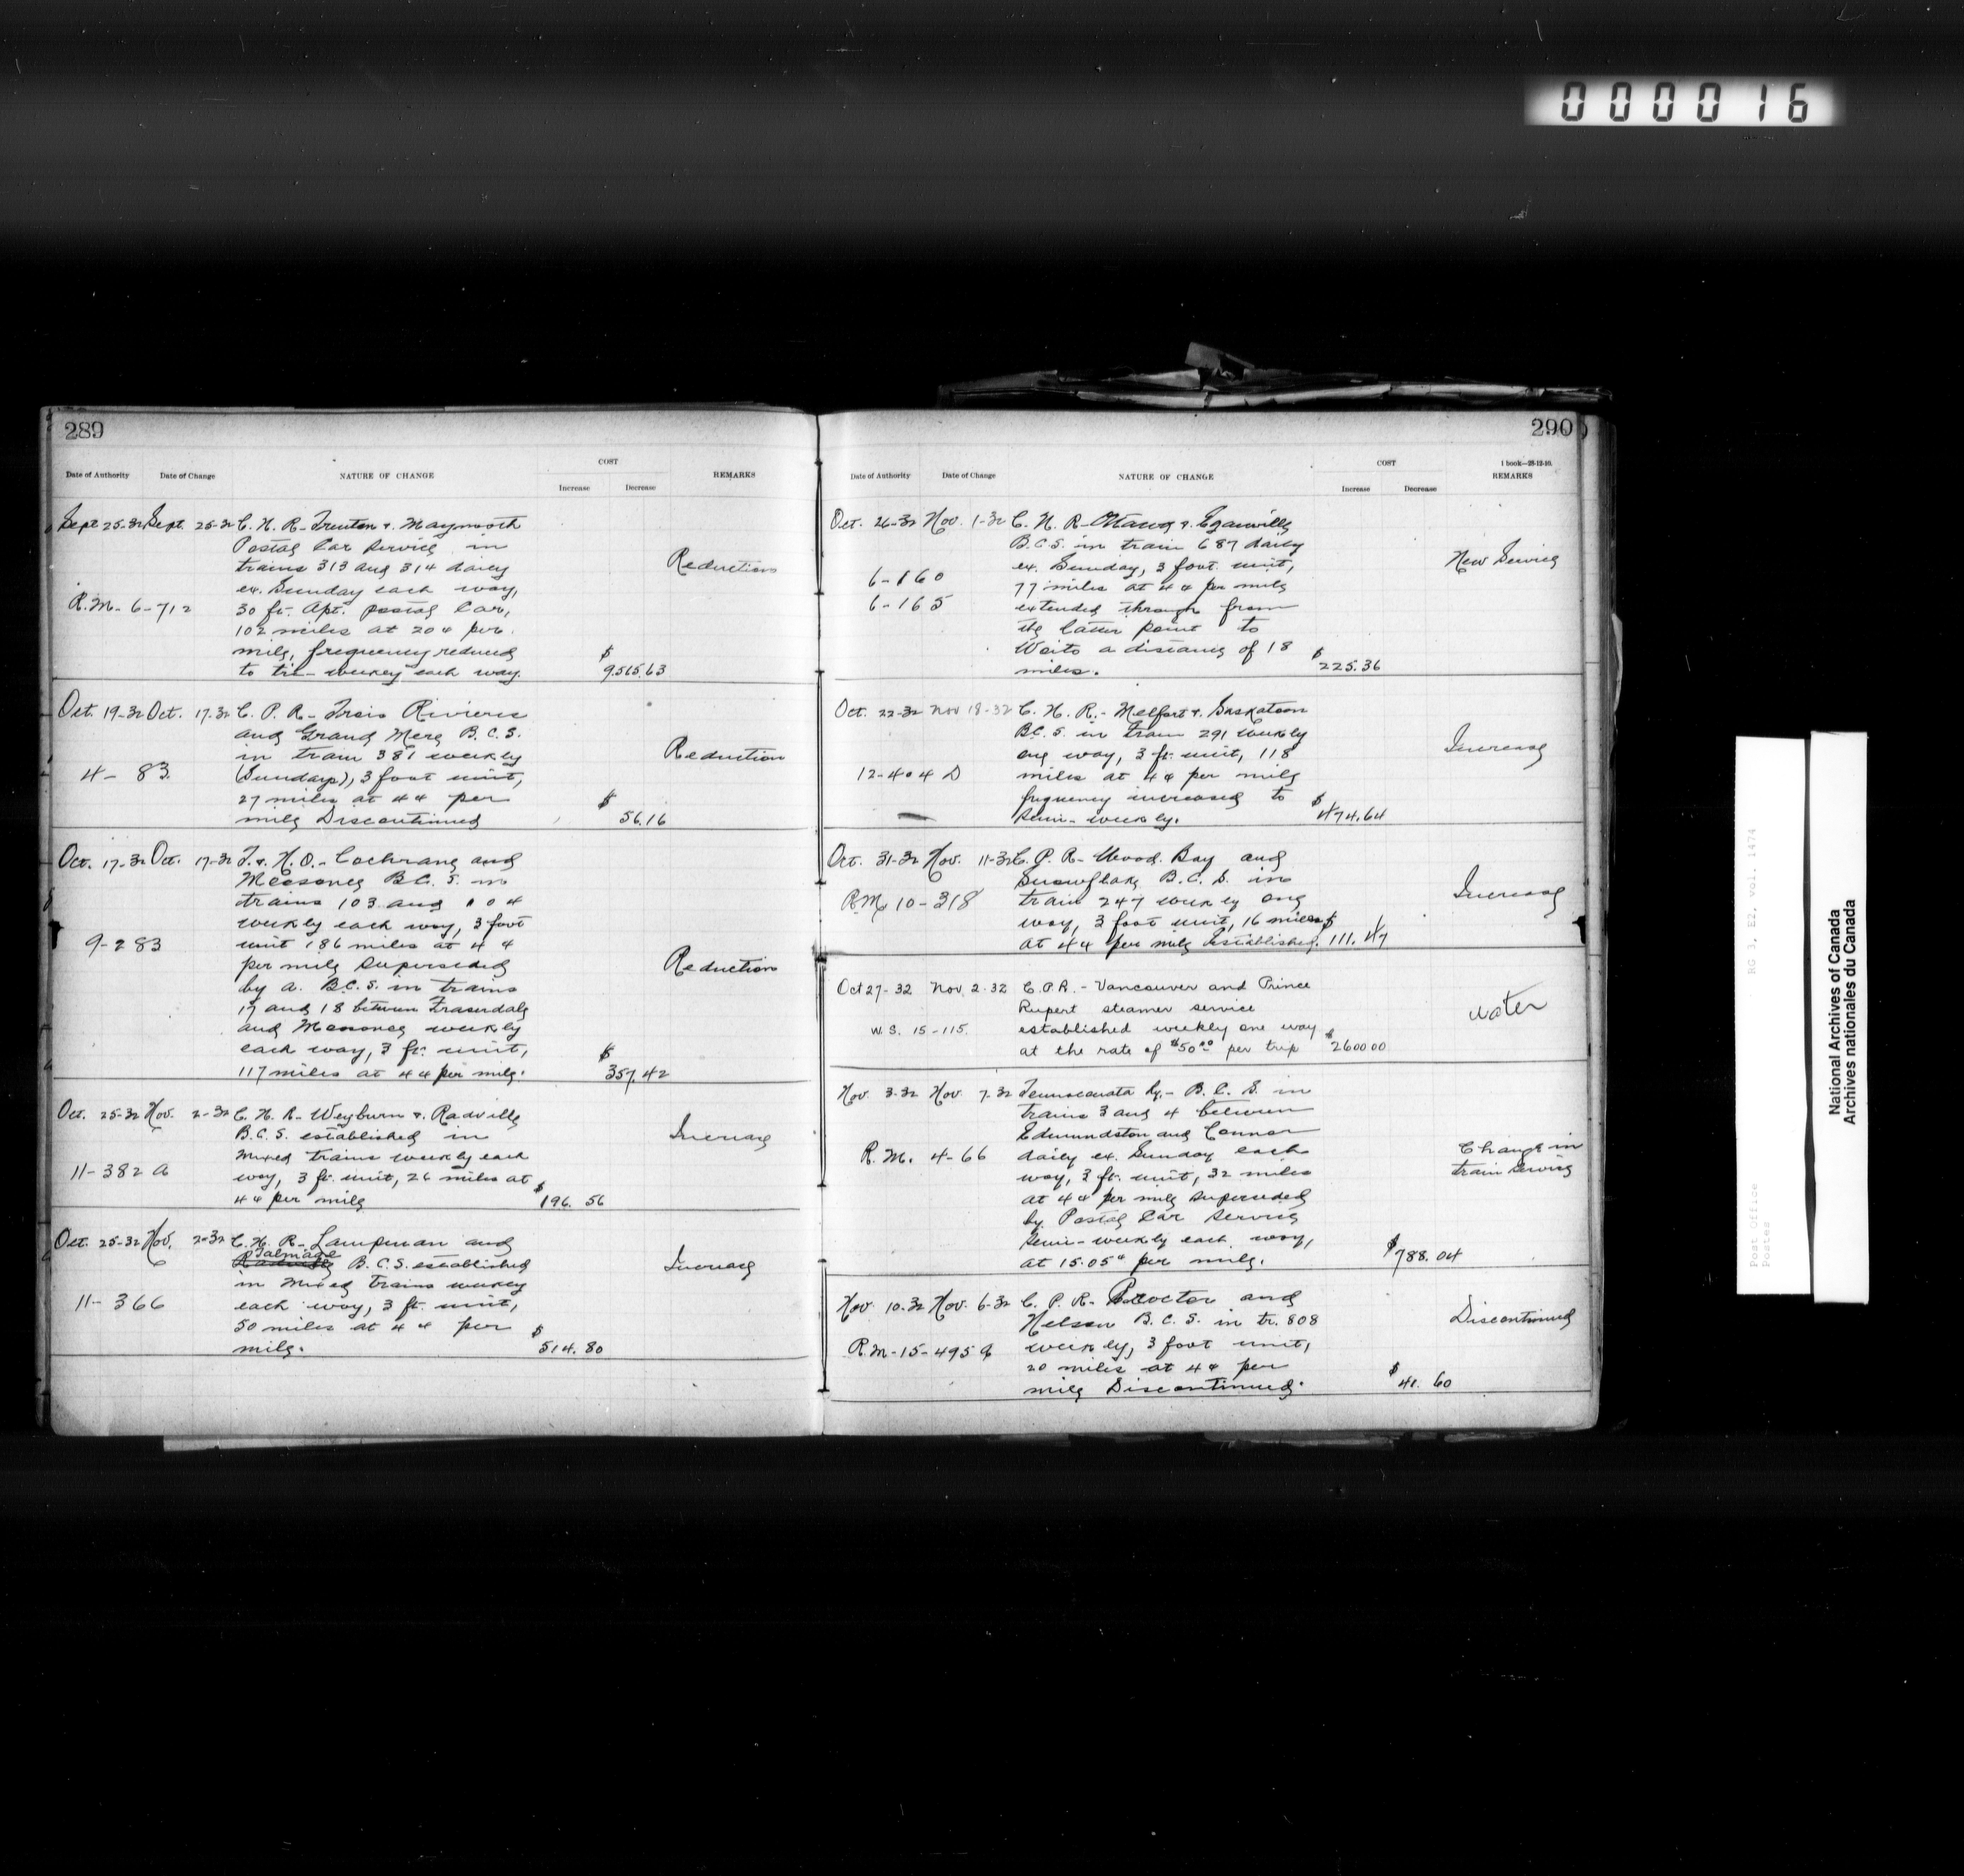 000016
289
Date of Authority Date of Change NATURE OF CHANGE COST Increase Decrease REMARKS
Sept 25-32 Sept. 25-32 C. N. R. - Trenton & Maynooth
Postal Car Service in
trains 313 and 314 daily
ex. Sunday each way,
R.M. - 6-712 30 ft. Apt. postal Car,
102 miles at 20¢ per
mile, frequency reduced
to tri-weekly each way. $9,515.63
Reduction
Oct. 19-32 Oct. 17-32 C. P. R - Trois Rivieres
and Grand Mere B.C.S.
in train 387 weekly
4-83 (Sundays), 3 foot unit,
27 miles at 4¢ per
mile Discontinued $56.16
Reduction
Oct. 17-32 Oct. 17-32 T. & N. O. - Cochrane and
Moosonee B.C.S. in
trains 103 and 104
weekly each way, 3 foot
9-283 unit 186 miles at 4¢
per mile superseded
by a. B.C.S. in trains
17 and 18 between Fraserdale
and Moosonee weekly
each way, 3 ft. unit,
117 miles at 4¢ per mile. $357.42
Reduction
Oct. 25-32 Nov. 2-32 C. N. R - Weyburn & Radville
B.C.S. established in
mixed trains weekly each
11-382 A way, 3 ft. unit, 26 miles at
4¢ per mile $196.56
Increase
Oct. 25-32 Nov. 2-32 C. N. R - Lampman and
Talmage
Radville B.C.S. established
in mixed trains weekly
11-366 each way, 3 ft. unit,
50 miles at 4¢ per
mile. $514.80
Increase
290
1 book-28-12-10.
Date of Authority Date of Change NATURE OF CHANGE COST Increase Decrease REMARKS
Oct. 26-32 Nov. 1-32 C. N. R - Ottawa & Eganville
B.C.S. in train 687 daily
6-160 ex. Sunday, 3 foot unit,
77 miles at 4¢ per mile
6-165 extended through from
the latter point to
Waito a distance of 18
miles. $225.36
New Service
Oct. 22-32 Nov 18-32 C. N. R. - Melfort & Saskatoon
B.C.S. in train 291 weekly
one way, 3 ft. unit, 118
12-404 D miles at 4¢ per mile
frequency increased to
semi-weekly. $474.64
Increase
Oct. 31-32 Nov. 11-32 C. P. R - Wood Bay and
Snowflake B.C.S. in
RM 10-318 train 247 weekly one
way, 3 foot unit, 16 miles
at 4¢ per mile Established. $111.47
Increase
Oct 27-32 Nov. 2-32 C.P.R. - Vancouver and Prince
Rupert steamer service
W.S. 15-115. established weekly one way
at the rate of $50.00 per trip $2600 00
water
Nov. 3-32 Nov. 7-32 Temiscouata Ry. - B.C.S. in
trains 3 and 4 between
Edmundston and Connor
R.M. 4-66 daily ex. Sunday each
way, 3 ft. unit, 32 miles
at 4¢ per mile superseded
by Postal Car Service
semi-weekly each way,
at 15.05¢ per mile. $788.04
Change in
train service
Nov. 10-32 Nov. 6-32 C. P. R - Proctor and
Nelson B.C.S. in tr. 808
R.M-15-495 weekly, 3 foot unit,
20 miles at 4¢ per
mile Discontinued. $41.60
Discontinued
RG 3, E2, vol. 1474
Post Office
Postes
National Archives of Canada
Archives nationales du Canada